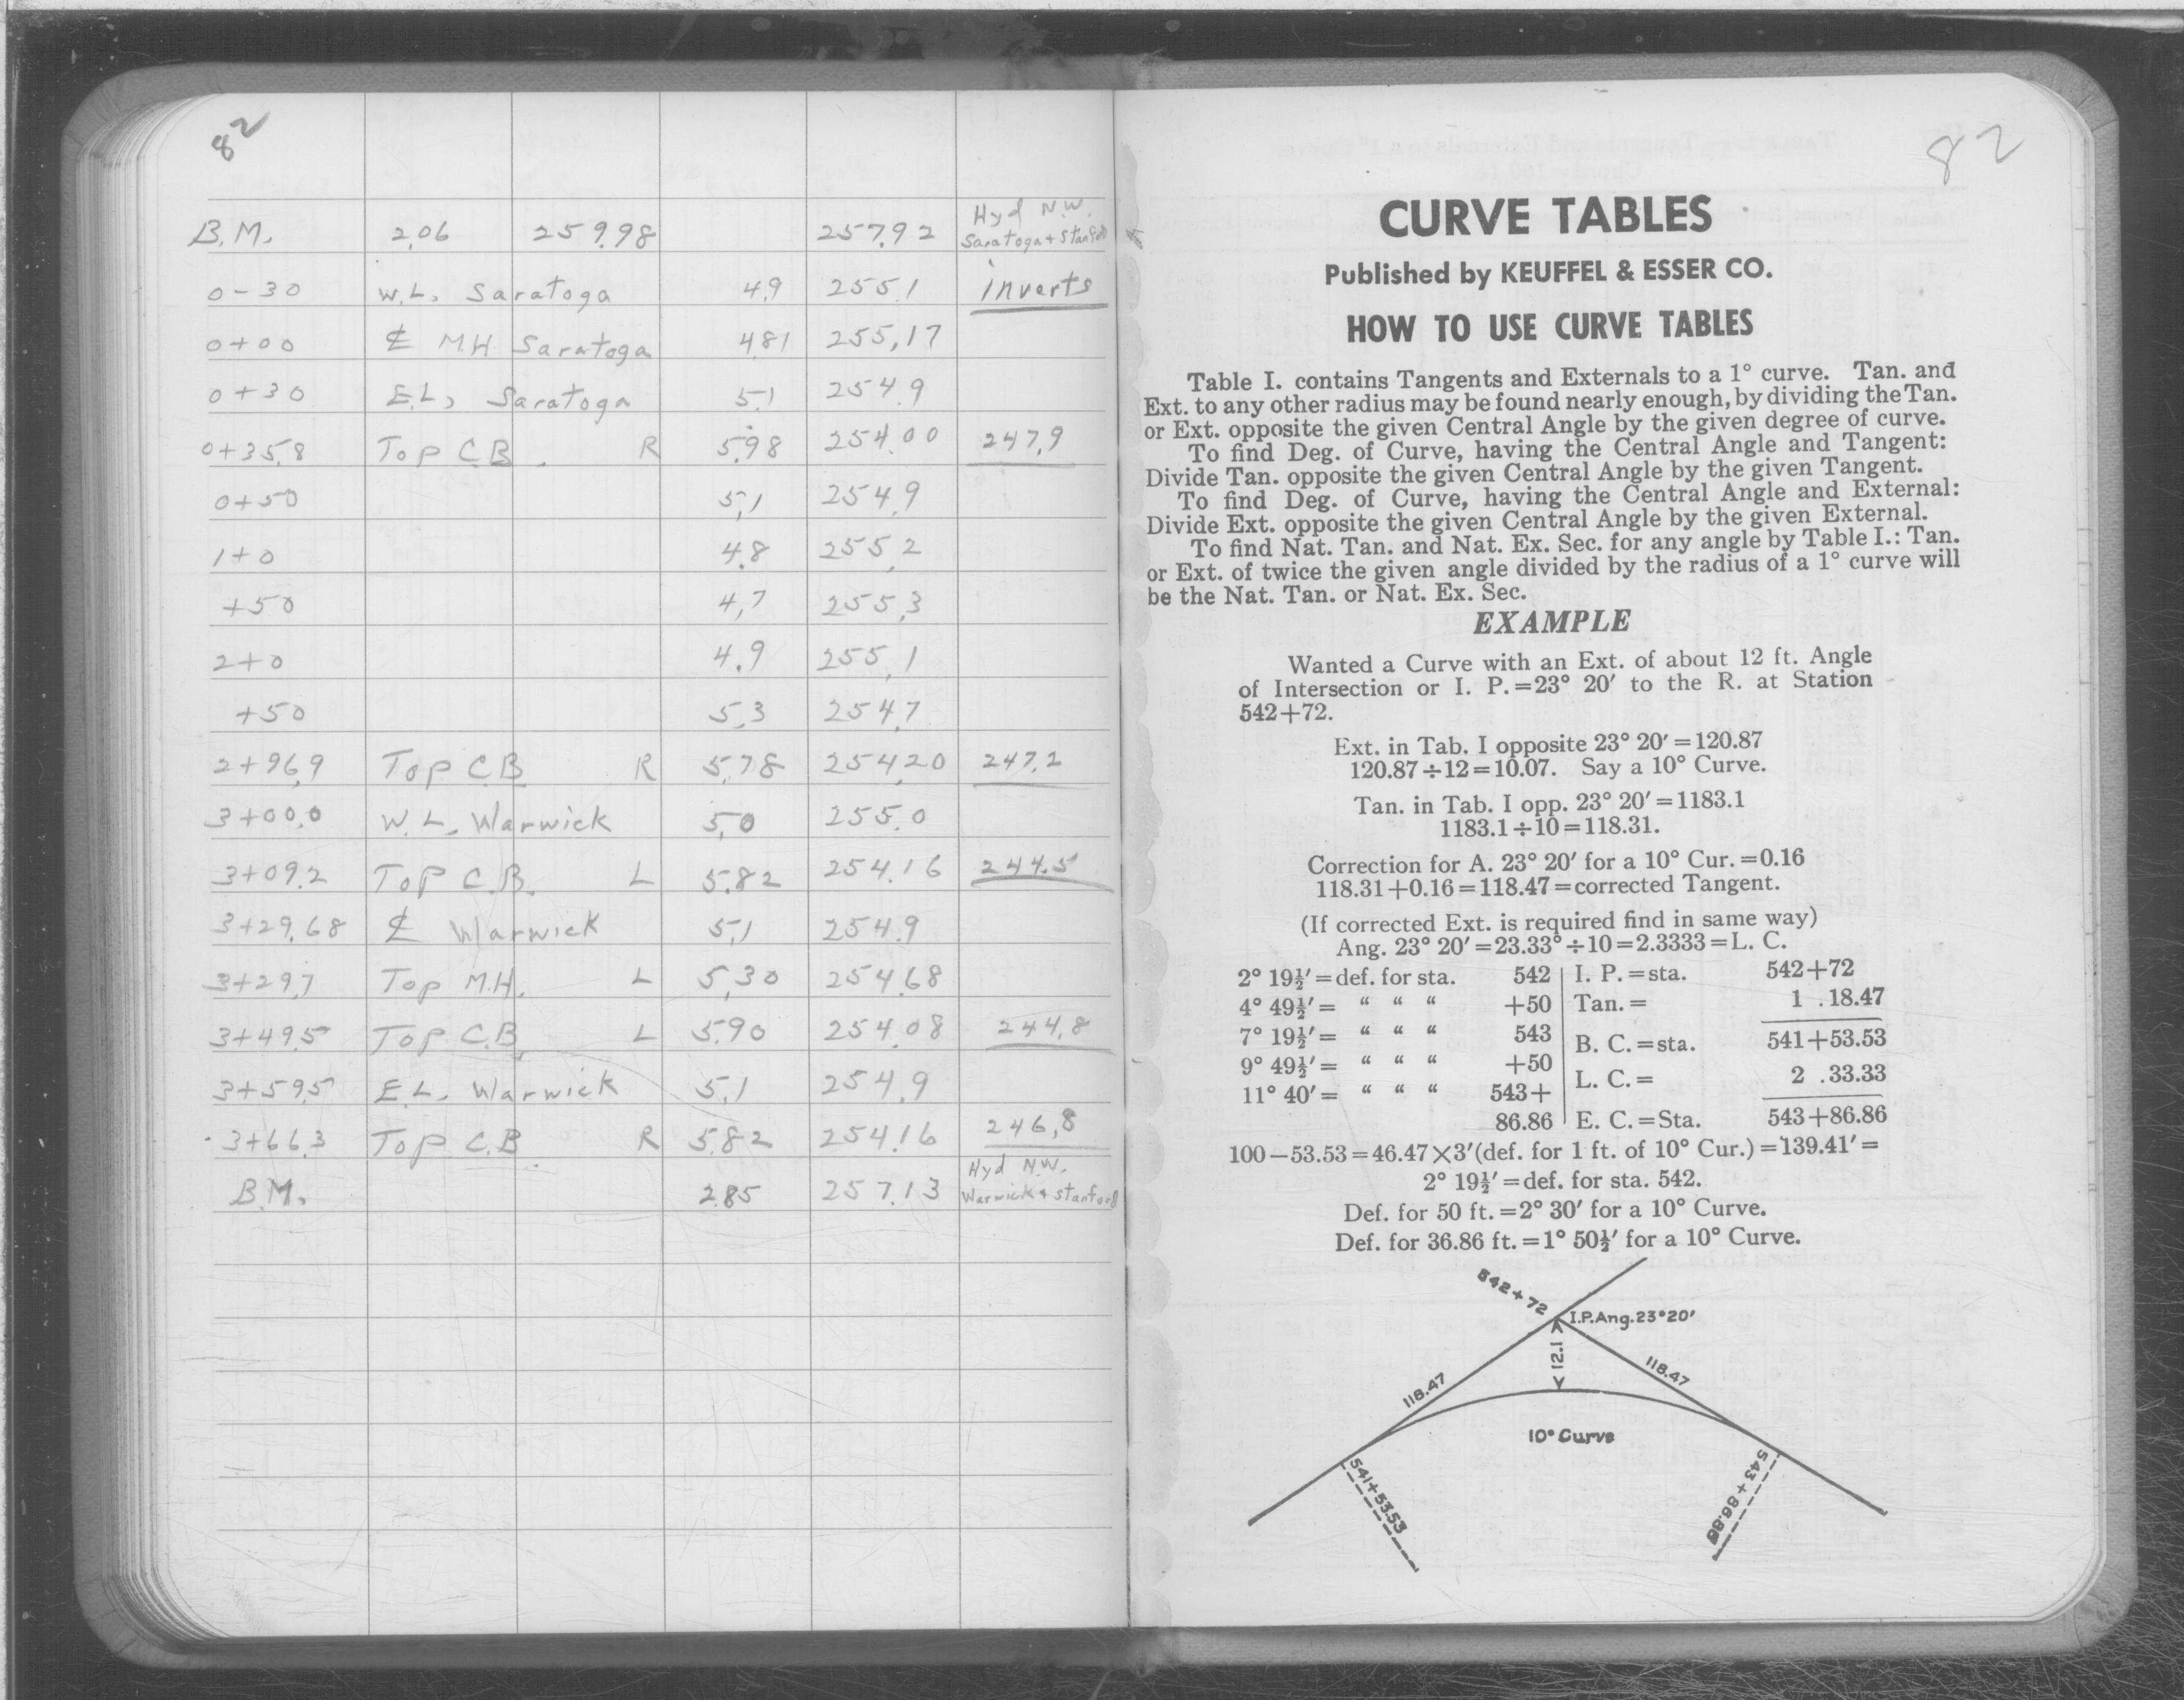 82
B.M. 2.06 259.98 257.92 Hyd N.W. Saratoga + Stanford
0-30 W.L. Saratoga 4.9 255.1 inverts
0+00 ℄ M.H Saratoga 4.81 255.17
0+30 E.L. Saratoga 5.1 254.9
0+35.8 Top C.B. R 5.98 254.00 247.9
0+50 5.1 254.9
1+0 4.8 255.2
+50 4.7 255.3
2+0 4.9 255.1
+50 5.3 254.7
2+96.9 Top C.B R 5.78 254.20 247.2
3+00.0 W.L. Warwick 5.0 255.0
3+09.2 Top C.B. L 5.82 254.16 244.5
3+29.68 ℄ Warwick 5.1 254.9
3+29.7 Top M.H. L 5.30 254.68
3+49.5 Top C.B. L 5.90 254.08 244.8
3+59.5 E.L. Warwick 5.1 254.9
3+66.3 Top C.B. R 5.82 254.16 246.8
B.M. 2.85 257.13 Hyd N.W. Warwick + Stanford
82
CURVE TABLES
Published by KEUFFEL & ESSER CO.
HOW TO USE CURVE TABLES
Table I. contains Tangents and Externals to a 1° curve. Tan. and
Ext. to any other radius may be found nearly enough, by dividing the Tan.
or Ext. opposite the given Central Angle by the given degree of curve.
To find Deg. of Curve, having the Central Angle and Tangent:
Divide Tan. opposite the given Central Angle by the given Tangent.
To find Deg. of Curve, having the Central Angle and External:
Divide Ext. opposite the given Central Angle by the given External.
To find Nat. Tan. and Nat. Ex. Sec. for any angle by Table I.: Tan.
or Ext. of twice the given angle divided by the radius of a 1° curve will
be the Nat. Tan. or Nat. Ex. Sec.
EXAMPLE
Wanted a Curve with an Ext. of about 12 ft. Angle
of Intersection or I. P.=23° 20′ to the R. at Station
542+72.
Ext. in Tab. I opposite 23° 20′=120.87
120.87÷12=10.07. Say a 10° Curve.
Tan. in Tab. I opp. 23° 20′=1183.1
1183.1÷10=118.31.
Correction for A. 23° 20′ for a 10° Cur.=0.16
118.31+0.16=118.47=corrected Tangent.
(If corrected Ext. is required find in same way)
Ang. 23° 20′=23.33°÷10=2.3333=L. C.
2° 19½′=def. for sta. 542 I. P.=sta. 542+72
4° 49½′= “ “ “ +50 Tan.= 1 .18.47
7° 19½′= “ “ “ 543 B. C.=sta. 541+53.53
9° 49½′= “ “ “ +50 L. C.= 2 .33.33
11° 40′= “ “ “ 543+
86.86 E. C.=Sta. 543+86.86
100−53.53=46.47×3′(def. for 1 ft. of 10° Cur.)=139.41′=
2° 19½′=def. for sta. 542.
Def. for 50 ft.=2° 30′ for a 10° Curve.
Def. for 36.86 ft.=1° 50½′ for a 10° Curve.
542+72
I.P.Ang.23°20′
12.1
118.47
118.47
10° Curve
541+53.53
543+86.86